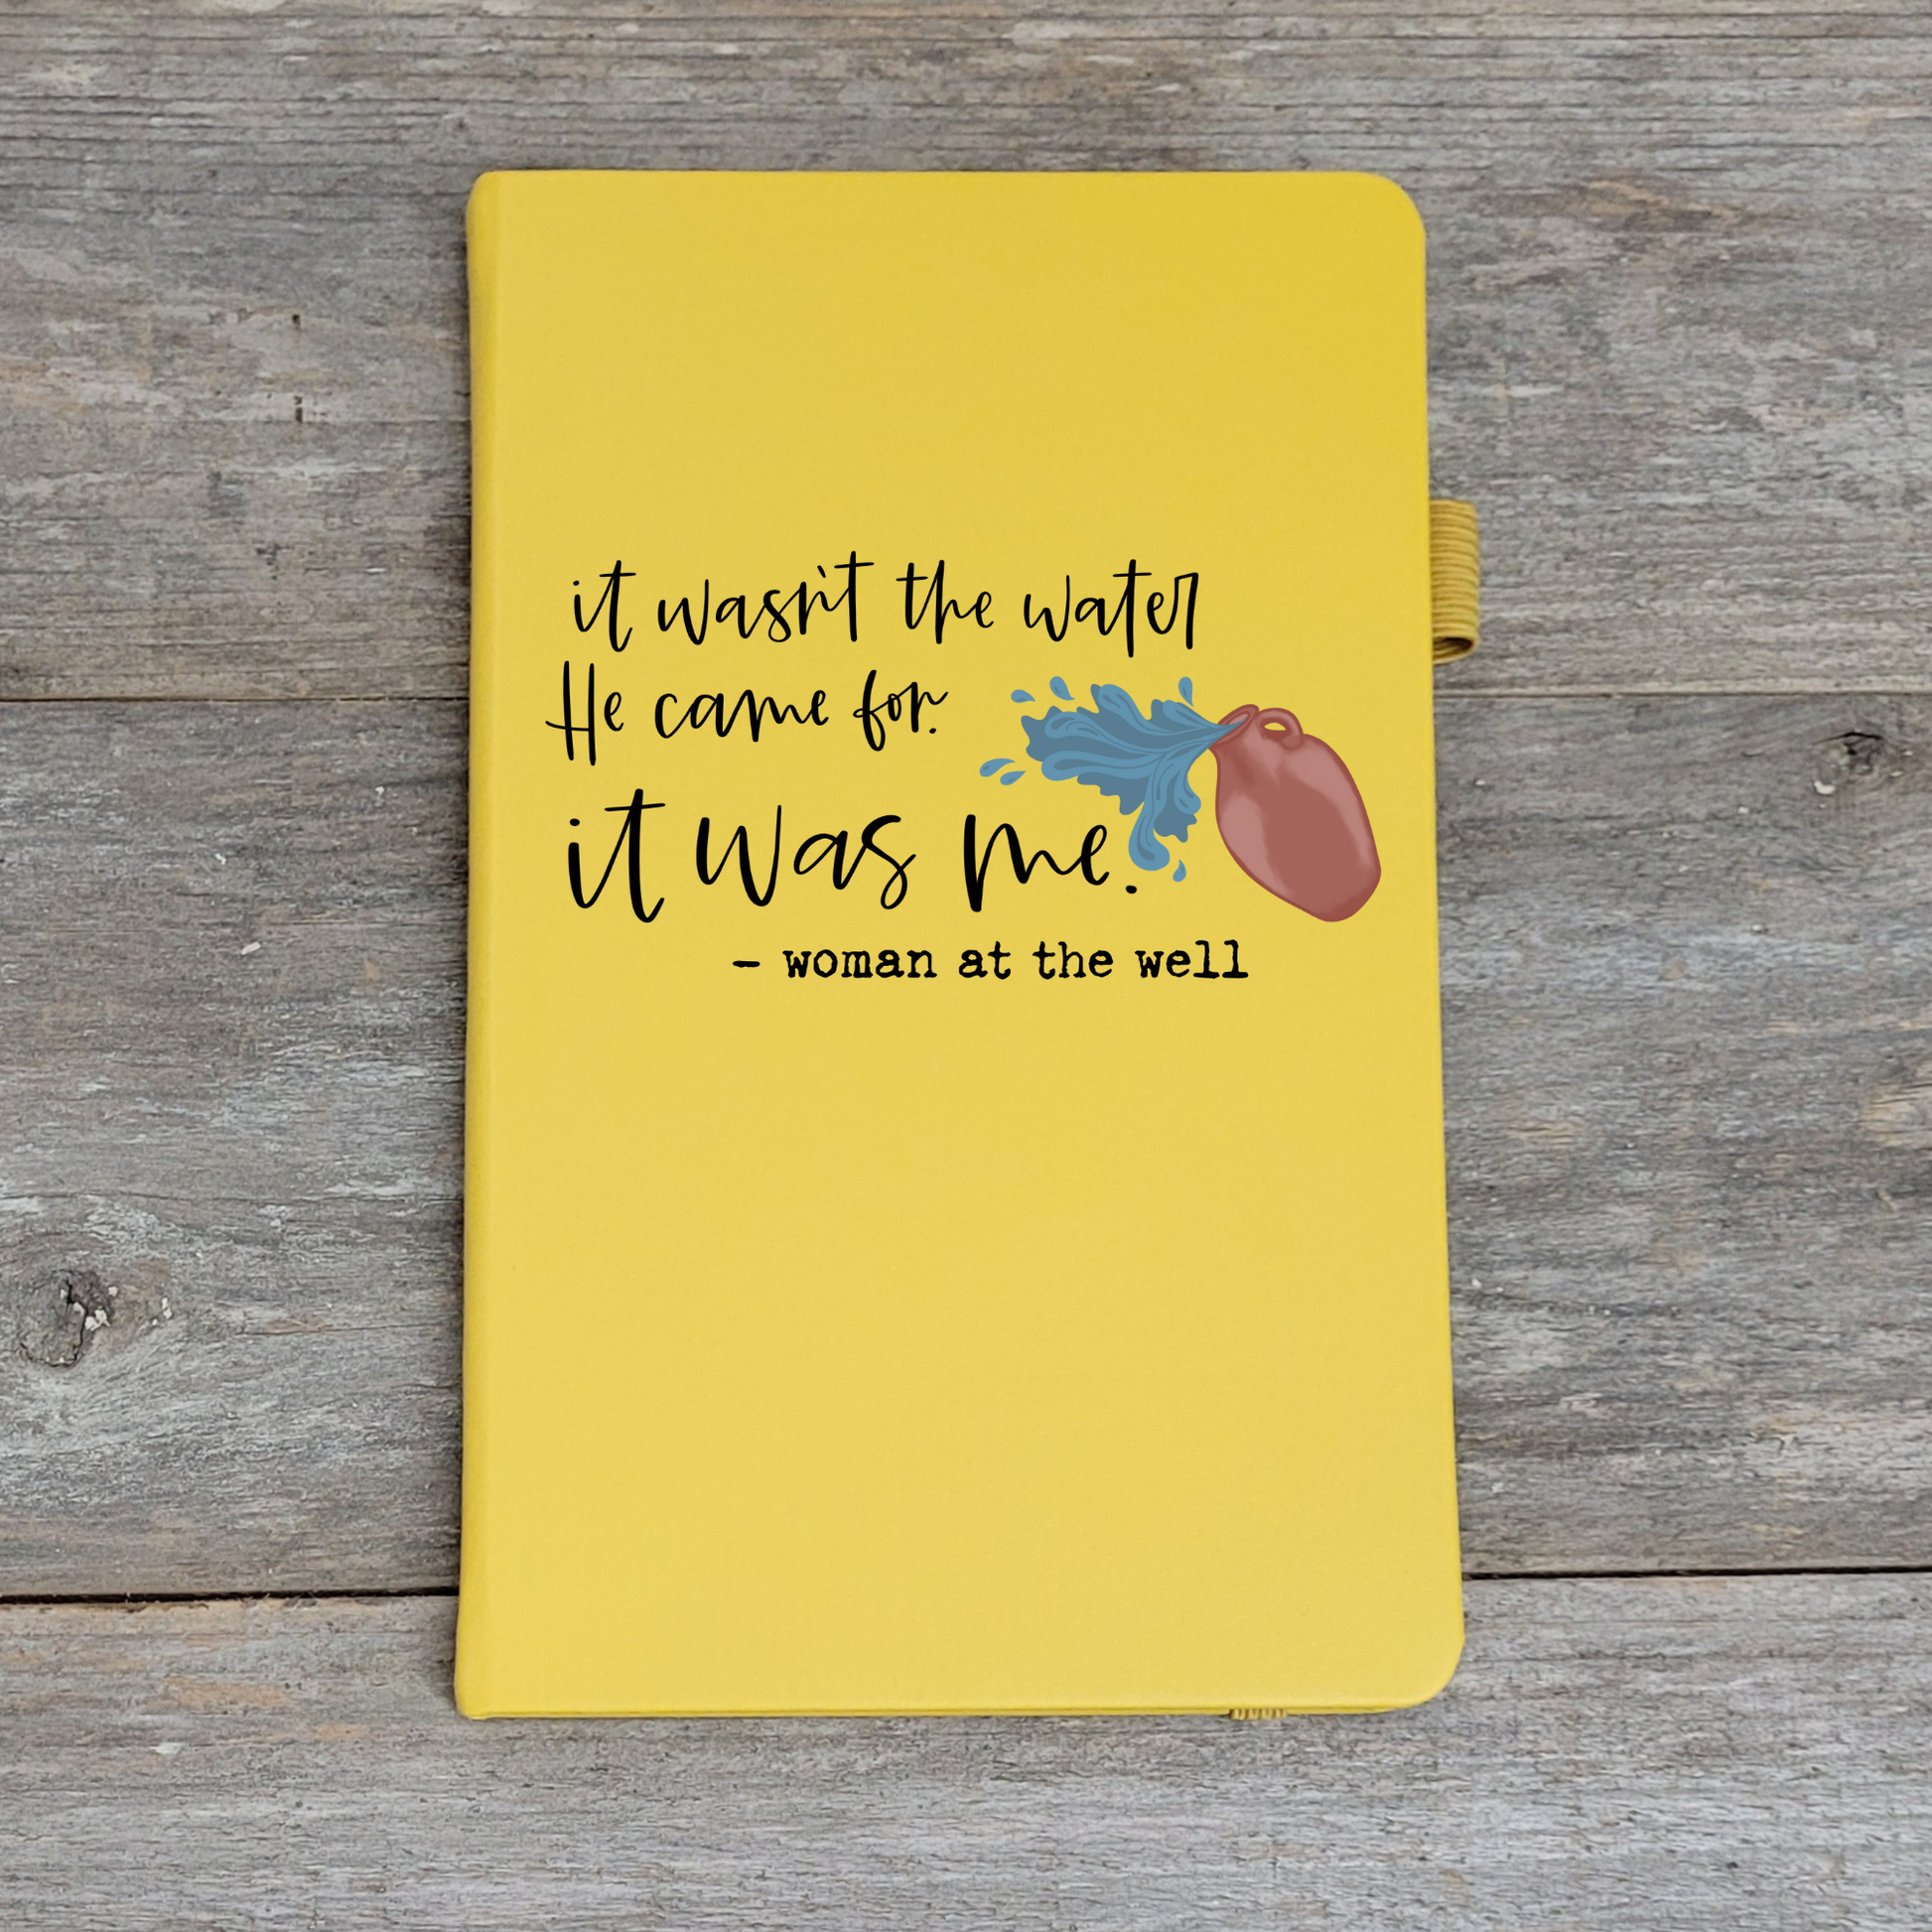 it wasn't the water
He came for.
it was me.
- woman at the well